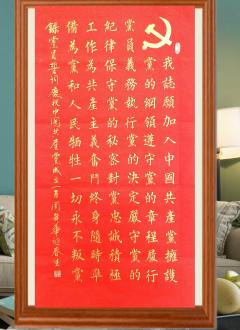 我誌願加入中國共產黨擁護
黨的綱領遵守黨的章程履行
黨員義務執行黨的決定嚴守黨的
紀律保守黨的秘密對黨忠誠積極
工作為共產主義奮鬥終身隨時準
備為黨和人民犧牲一切永不叛黨
錄黨員誓詞慶祝中國共產黨成立一百周年